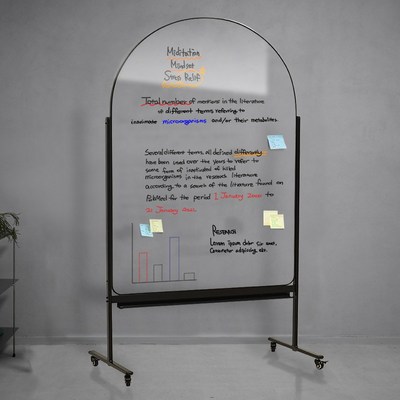 Miditation
Mindset
Stress Relief
Total number of mentions in the literature
of different terms referring to
inanimate microorganisms and/or their metabolites
Several different terms, all defined differently
have been used over the years to refer to
some form of inactivated or killed
microorganisms in the research literature
according to a search of the literature found on
PubMed for the period 1 January 2000 to
January
Research
Lorem ipsum dolor sit amet,
Consectetur adipiscing elit.